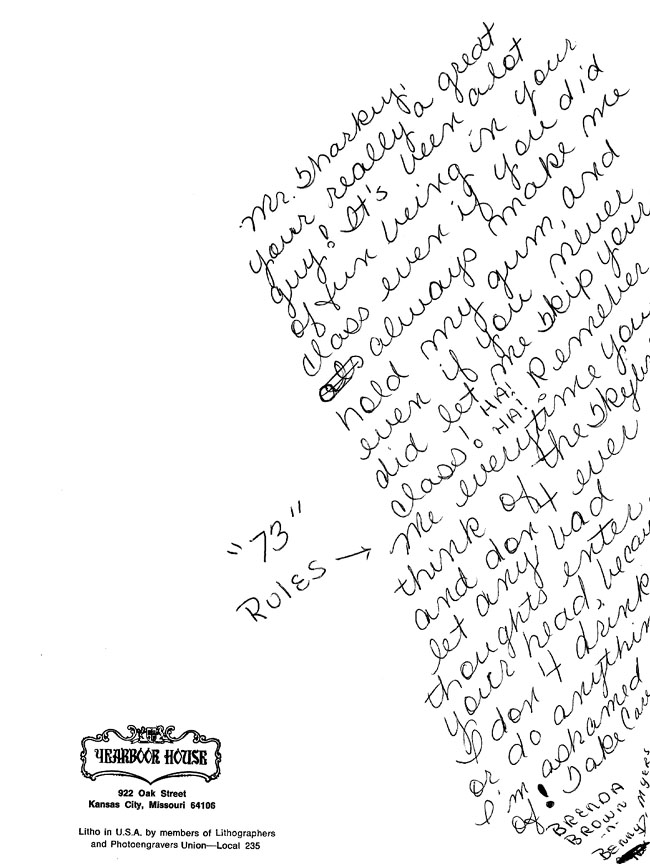 Mr. Sharkey,
your really a great
guy! It's been a lot
of fun being in your
class even if you did
always make me
hold my gum, and
even if you never
did let me skip your
class! HA! HA! Remeher
me everytime you
think of the Skyli
and don't ever
let any bad
thoughts enter
your head, becau
I don't drink
or do anythin
I'm ashamed
of! Take Care
BRENDA
BROWN
-n-
BENNY MYERS
"73"
RULES →
YEARBOOK HOUSE
922 Oak Street
Kansas City, Missouri 64106
Litho in U.S.A. by members of Lithographers
and Photoengravers Union—Local 235